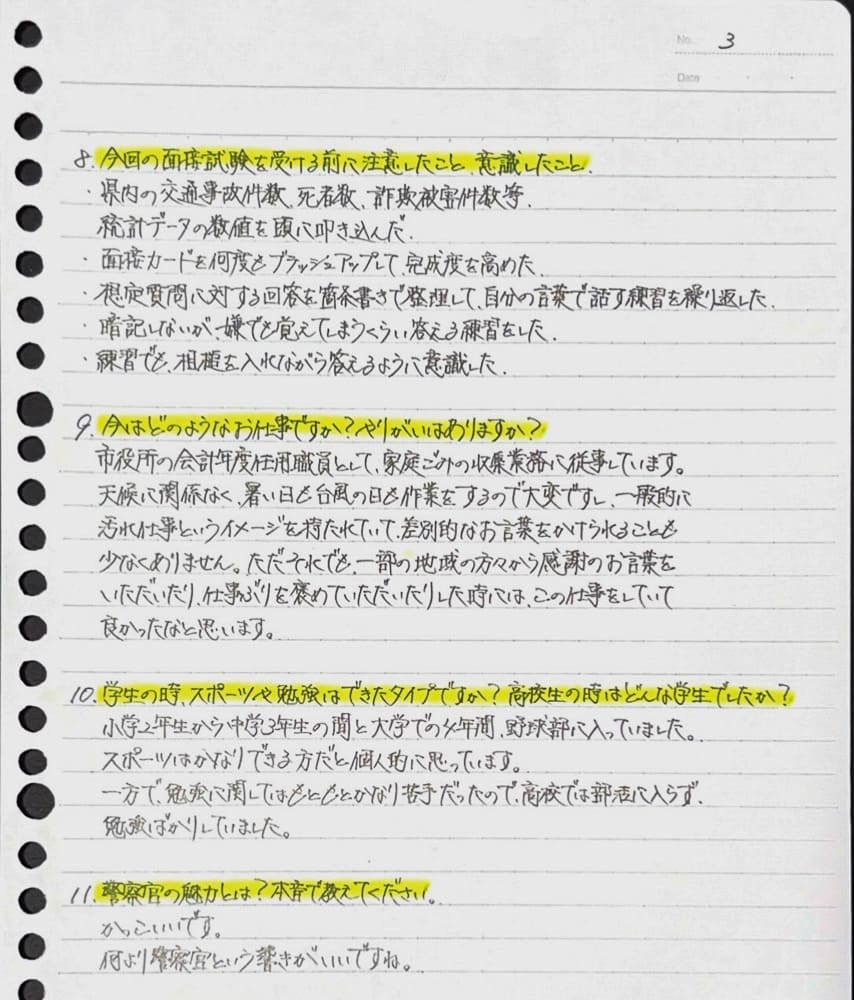 No. 3
Date
8. 今回の面接試験を受ける前に注意したこと、意識したこと.
・県内の交通事故件数、死者数、詐欺被害件数等.
統計データの数値を頭に叩き込んだ.
・面接カードを何度もブラッシュアップして、完成度を高めた.
・想定質問に対する回答を箇条書きで整理して、自分の言葉で話す練習を繰り返した.
・暗記しないが、嫌でも覚えてしまうくらい答える練習をした.
・練習でも、相槌を入れながら答えるように意識した.
9. 今はどのようなお仕事ですか?やりがいはありますか?
市役所の会計年度任用職員として、家庭ごみの収集業務に従事しています。
天候に関係なく、暑い日も台風の日も作業をするので大変ですし、一般的に
汚れ仕事というイメージを持たれていて、差別的なお言葉をかけられることも
少なくありません。ただそれでも、一部の地域の方々から感謝のお言葉を
いただいたり、仕事ぶりを褒めていただいたりした時には、この仕事をしていて
良かったなと思います。
10. 学生の時、スポーツや勉強はできたタイプですか?高校生の時はどんな学生でしたか?
小学2年生から中学3年生の間と大学での4年間、野球部に入っていました。
スポーツはかなりできる方だと個人的に思っています。
一方で、勉強に関してはもともとかなり苦手だったので、高校では部活に入らず、
勉強ばかりしていました。
11. 警察官の魅力とは?本音で教えてください。
かっこいいです。
何より警察官という響きがいいですね。